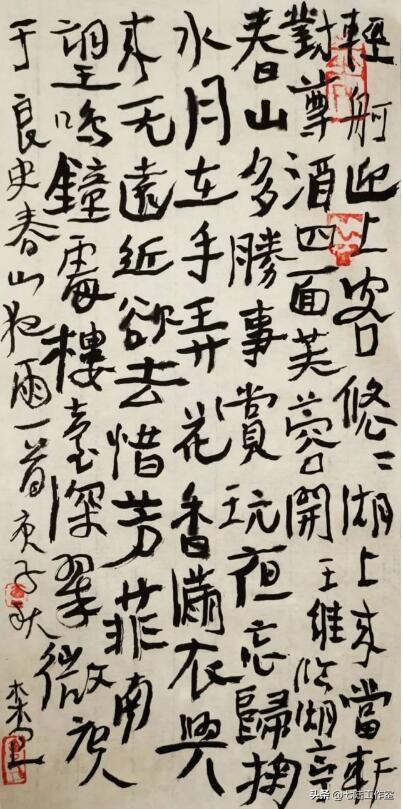 輕舸迎上客悠〻湖上來當軒
對尊酒四面芙蓉開王維臨湖亭
春山多勝事賞玩夜忘歸掬
水月在手弄花香滿衣興
來无遠近欲去惜芳菲南
望鳴鐘處樓臺深翠微唐人
于良史春山夜雨一首庚子秋
头条 @七陆工作室